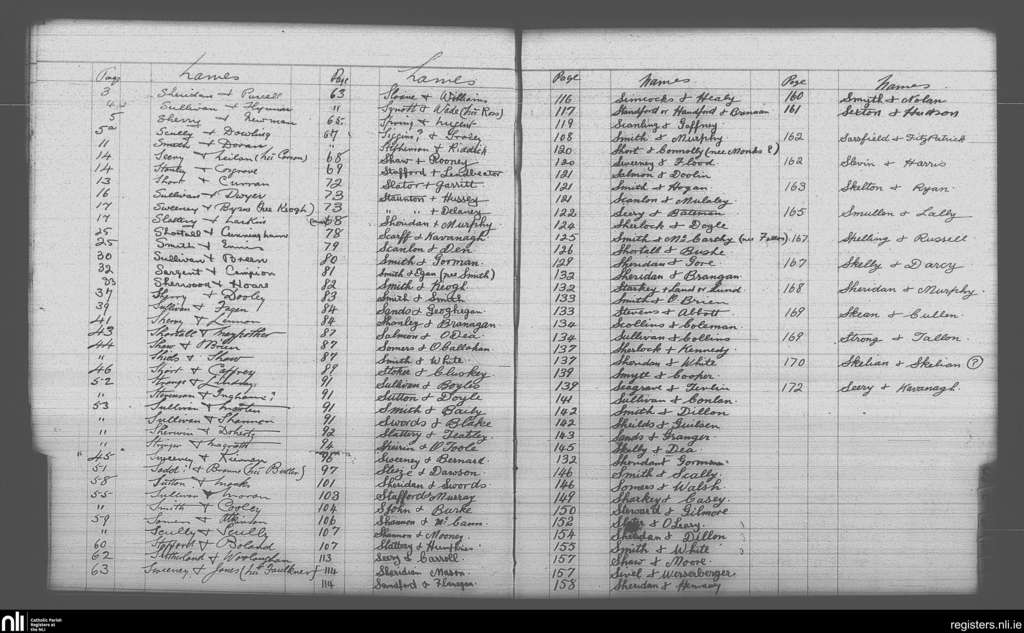 Page Names
3 Sheridan & Purcell
4 Sullivan &
5 Sherry & Newman
5a Scully & Dowling
11 Smith & Doran
14 Seery &
14 Stanley & Cosgrove
13 Short & Curran
16 Sullivan & Dwyer
17 Sweeney & Byrns (née Keogh)
17 Slattery & Larkin
25 Shortall & Cunningham
25 Smith & Ennis
30 Sullivan &
32 Sargent & Campion
33 Sherwood & Hoare
37 Sherry & Dooley
39 Sullivan & Fagen
41 & Lennon
43 Shortall &
44 Shaw & O'Brien
" Shiels & Shaw
46 Short & Caffrey
52 Strange & Lindsay
" Stevenson & Ingham?
53 Sullivan &
" Sullivan & Shannon
" Sherwin & Doherty
" &
45 Sweeney & Kiernan
51 & Browne (née Butler)
58 Sutton &
55 Sullivan & Moran
" Smith & Cooley
59 & Atkinson
" Scully & Scully
60 Stafford & Boland
62 Sutherland &
63 Sweeney & Jones (née Faulkner)
Page Names
63 Sloane & Williams
" Synott & Wade (née Ross)
65 &
67 ? & Gooley
" Stephenson & Riddick
68 Shaw & Rooney
69 Stafford & Leadbeater
72 Slator & Garritt
73 Staunton & Hussey
73 " " & Delaney
68 Sheridan & Murphy
78 Scarff & Kavanagh
79 Scanlon & Den
80 Smith & Gorman
81 Smith & Egan (née Smith)
82 Smith & Keogh
83 Smith & Smith
84 Sands & Geoghegan
84 Shanley & Branagan
87 Salmon & O'Dea
87 Somers & O'Callahan
87 Smith & White
89 Stoker & Cluskey
91 Sullivan & Boyles
91 Sutton & Doyle
91 Smith & Baily
91 Swords & Blake
92 Slattery &
94 & O'Toole
96 Sweeney & Bernard
97 & Dawson
101 Sheridan & Swords
103 Stafford & Murray
104 St John & Burke
106 Shannon & McCann
107 Shannon & Mooney
107 Slattery & Humphries
113 Seery & Carroll
114 Sheridan Mason
114 Sandford & Flanagan
Page Names
116 Simcocks & Healy
117 Standford or Handford & Brennan
119 Scanling & Gaffney
108 Smith & Murphy
120 Short & Connolly (nee Monks?)
120 Sweeney & Flood
121 Salmon & Doolin
121 Smith & Hogan
121 Scanlon & Mulaley
122 Seery & Bateman
124 Sherlock & Doyle
125 Smith & McCarthy (née )
126 Shortall & Bushe
129 Sheridan & Gore
132 Sheridan & Brangan
132 Starkey & Land or Lund
133 Smith & O'Brien
133 Stevens & Abbott
134 Scollins & Coleman
134 Sullivan & Collins
137 Sherlock & Kennedy
137 Sheridan & White
139 Smyth & Cooper
139 Seagrave &
141 Sullivan & Conlan
142 Smith & Dillon
142 Sheilds &
143 Sands & Granger
145 Skelly & Dea
132 Sheridan & Gorman
146 Smith & Scally
146 Somers & Walsh
149 Sharkey & Casey
150 Steward & Gilmore
152 & O'Leary
154 Sheridan & Dillon
155 Smith & White
157 Shaw & Moore
157 & Wesserberger
158 Sheridan &
Page Names
160 Smyth & Nolan
161 Sexton & Hudson
162 Sarsfield & FitzPatrick
162 Slevin & Harris
163 Skelton & Ryan
165 Smullen & Lally
167 Skelling & Russell
167 Skelly & Darcy
168 Sheridan & Murphy
169 Skean & Cullen
169 Strong & Fallon
170 Skelian & Skelian (?)
172 Seery & Kavanagh
nli Catholic Parish Registers at the NLI
registers.nli.ie